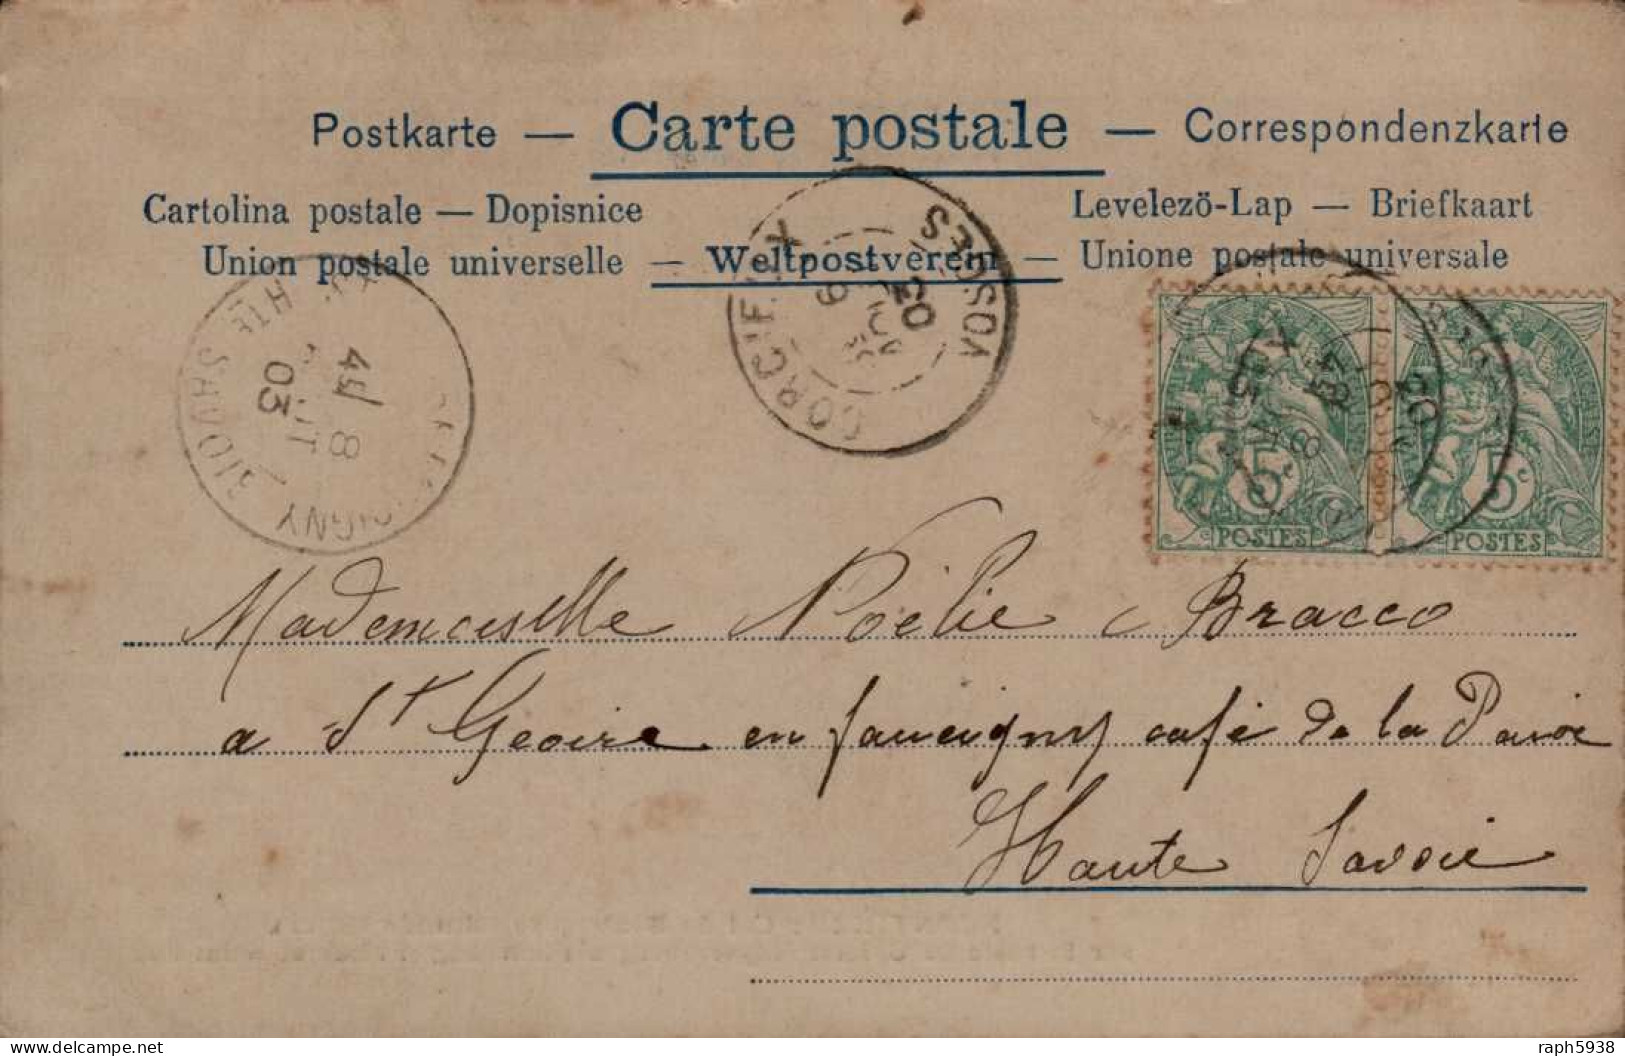 Postkarte — Carte postale — Correspondenzkarte
Cartolina postale — Dopisnice
Levelezö-Lap — Briefkaart
Union postale universelle — Weltpostverein — Unione postale universale
CORCIEUX
VOSGES
20
HTE SAVOIE
03
8
5c
POSTES
5c
POSTES
Mademoiselle Noëlie Bracco
a St Geoire en faucigny café de la Paix
Haute Savoie
delcampe.net
raph5938